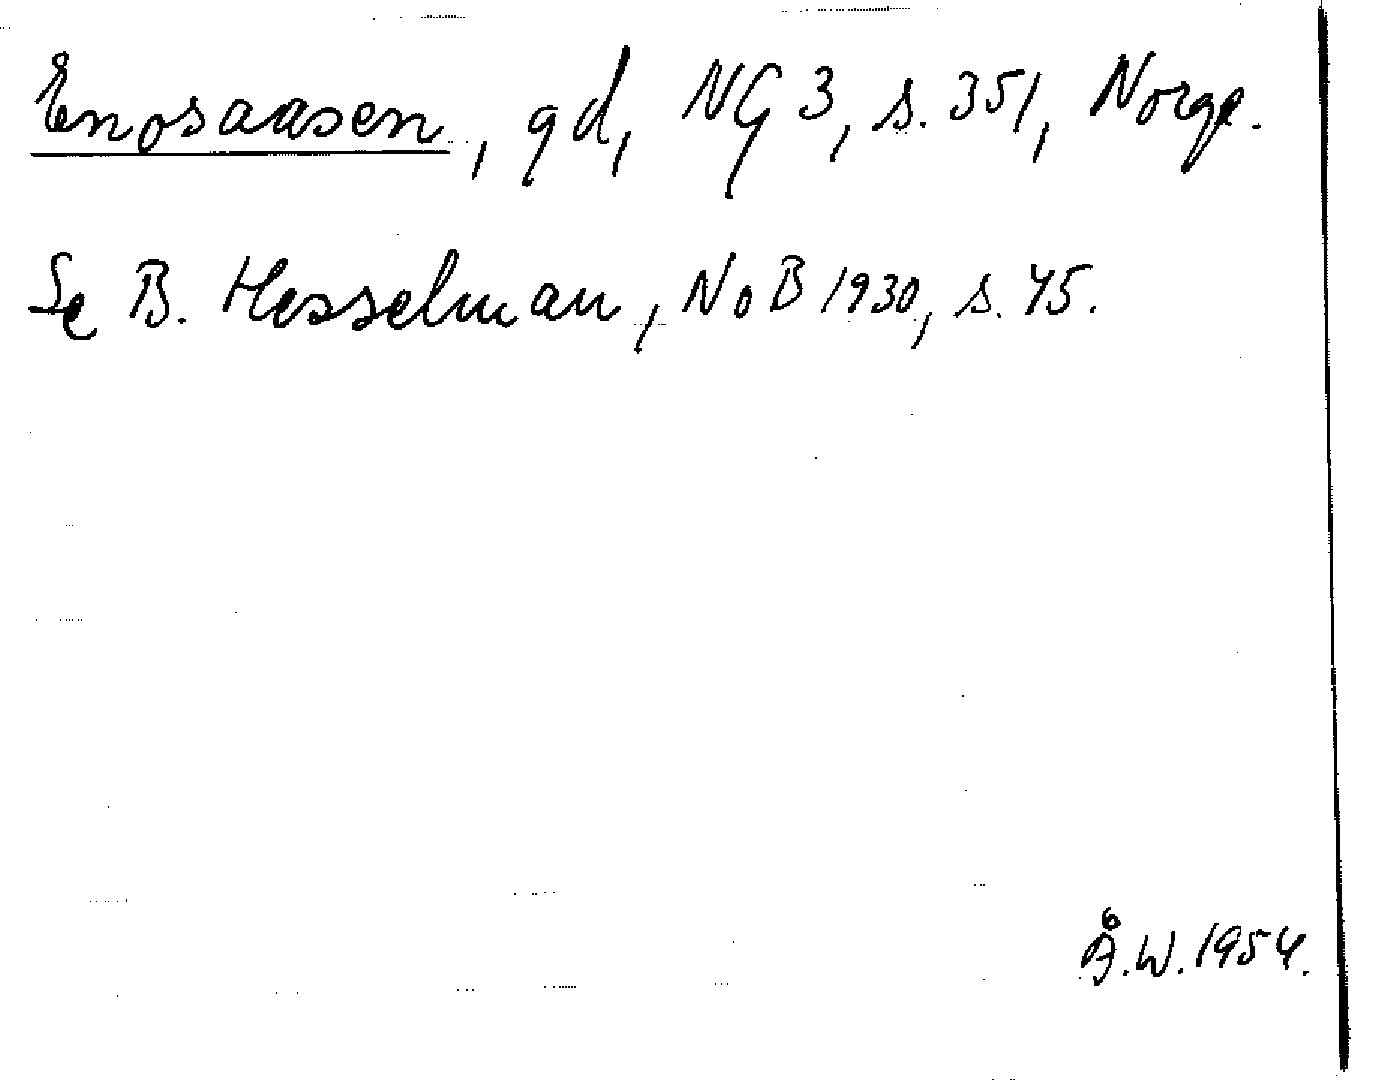 Enosaasen, gd, NG 3, s. 351, Norge.
Se B. Hesselman, NoB 1930, s. 45.
Å.W. 1954.